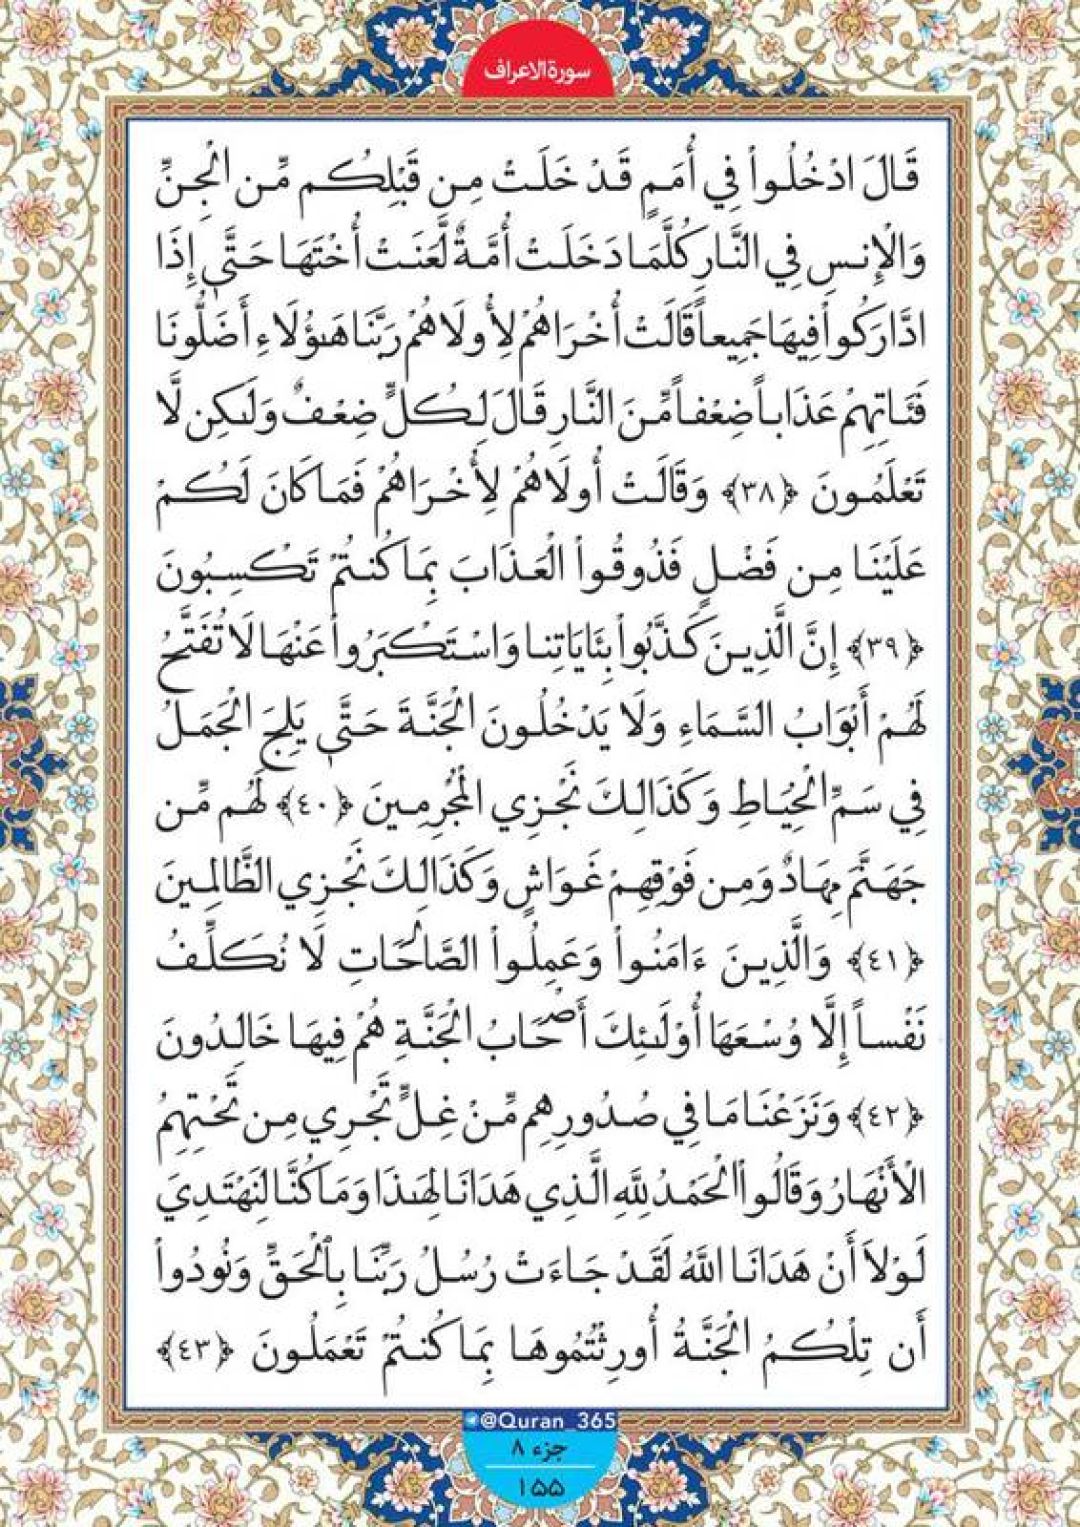 سورة الاعراف
قَالَ ادْخُلُواْ فِي أُمَمٍ قَدْ خَلَتْ مِن قَبْلِكُم مِّن الْجِنِّ
وَالْإِنسِ فِي النَّارِ كُلَّمَا دَخَلَتْ أُمَّةٌ لَّعَنَتْ أُخْتَهَا حَتَّى إِذَا
ادَّارَكُواْ فِيهَا جَمِيعاً قَالَتْ أُخْرَاهُمْ لِأُولَاهُمْ رَبَّنَا هَـٰؤُلَاءِ أَضَلُّونَا
فَـَٔاتِهِمْ عَذَاباً ضِعْفاً مِّنَ النَّارِ قَالَ لِكُلٍّ ضِعْفٌ وَلَـٰكِن لَّا
تَعْلَمُونَ ﴿٣٨﴾ وَقَالَتْ أُولَاهُمْ لِأُخْرَاهُمْ فَمَا كَانَ لَكُمْ
عَلَيْنَا مِن فَضْلٍ فَذُوقُواْ الْعَذَابَ بِمَا كُنتُمْ تَكْسِبُونَ
﴿٣٩﴾ إِنَّ الَّذِينَ كَذَّبُواْ بِـَٔايَاتِنا وَاسْتَكْبَرُواْ عَنْهَا لَا تُفَتَّحُ
لَهُمْ أَبْوَابُ السَّمَاءِ وَلَا يَدْخُلُونَ الْجَنَّةَ حَتَّى يَلِجَ الْجَمَلُ
فِي سَمِّ الْخِيَاطِ وَكَذَالِكَ نَجْزِي الْمُجْرِمِينَ ﴿٤٠﴾ لَهُم مِّن
جَهَنَّمَ مِهَادٌ وَمِن فَوْقِهِمْ غَوَاشٍ وَكَذَالِكَ نَجْزِي الظَّالِمِينَ
﴿٤١﴾ وَالَّذِينَ ءَامَنُواْ وَعَمِلُواْ الصَّالِحَاتِ لَا نُكَلِّفُ
نَفْساً إِلَّا وُسْعَهَا أُوْلَـٰئِكَ أَصْحَابُ الْجَنَّةِ هُمْ فِيهَا خَالِدُونَ
﴿٤٢﴾ وَنَزَعْنَا مَا فِي صُدُورِهِم مِّنْ غِلٍّ تَجْرِي مِن تَحْتِهِمُ
الْأَنْهَارُ وَقَالُواْ الْحَمْدُ لِلَّهِ الَّذِي هَدَانَا لِهَـٰذَا وَمَا كُنَّا لِنَهْتَدِيَ
لَوْلَا أَنْ هَدَانَا اللَّهُ لَقَدْ جَاءَتْ رُسُلُ رَبِّنَا بِالْحَقِّ وَنُودُواْ
أَن تِلْكُمُ الْجَنَّةُ أُورِثْتُمُوهَا بِمَا كُنتُمْ تَعْمَلُونَ ﴿٤٣﴾
@Quran_365
جزء ٨
١٥٥